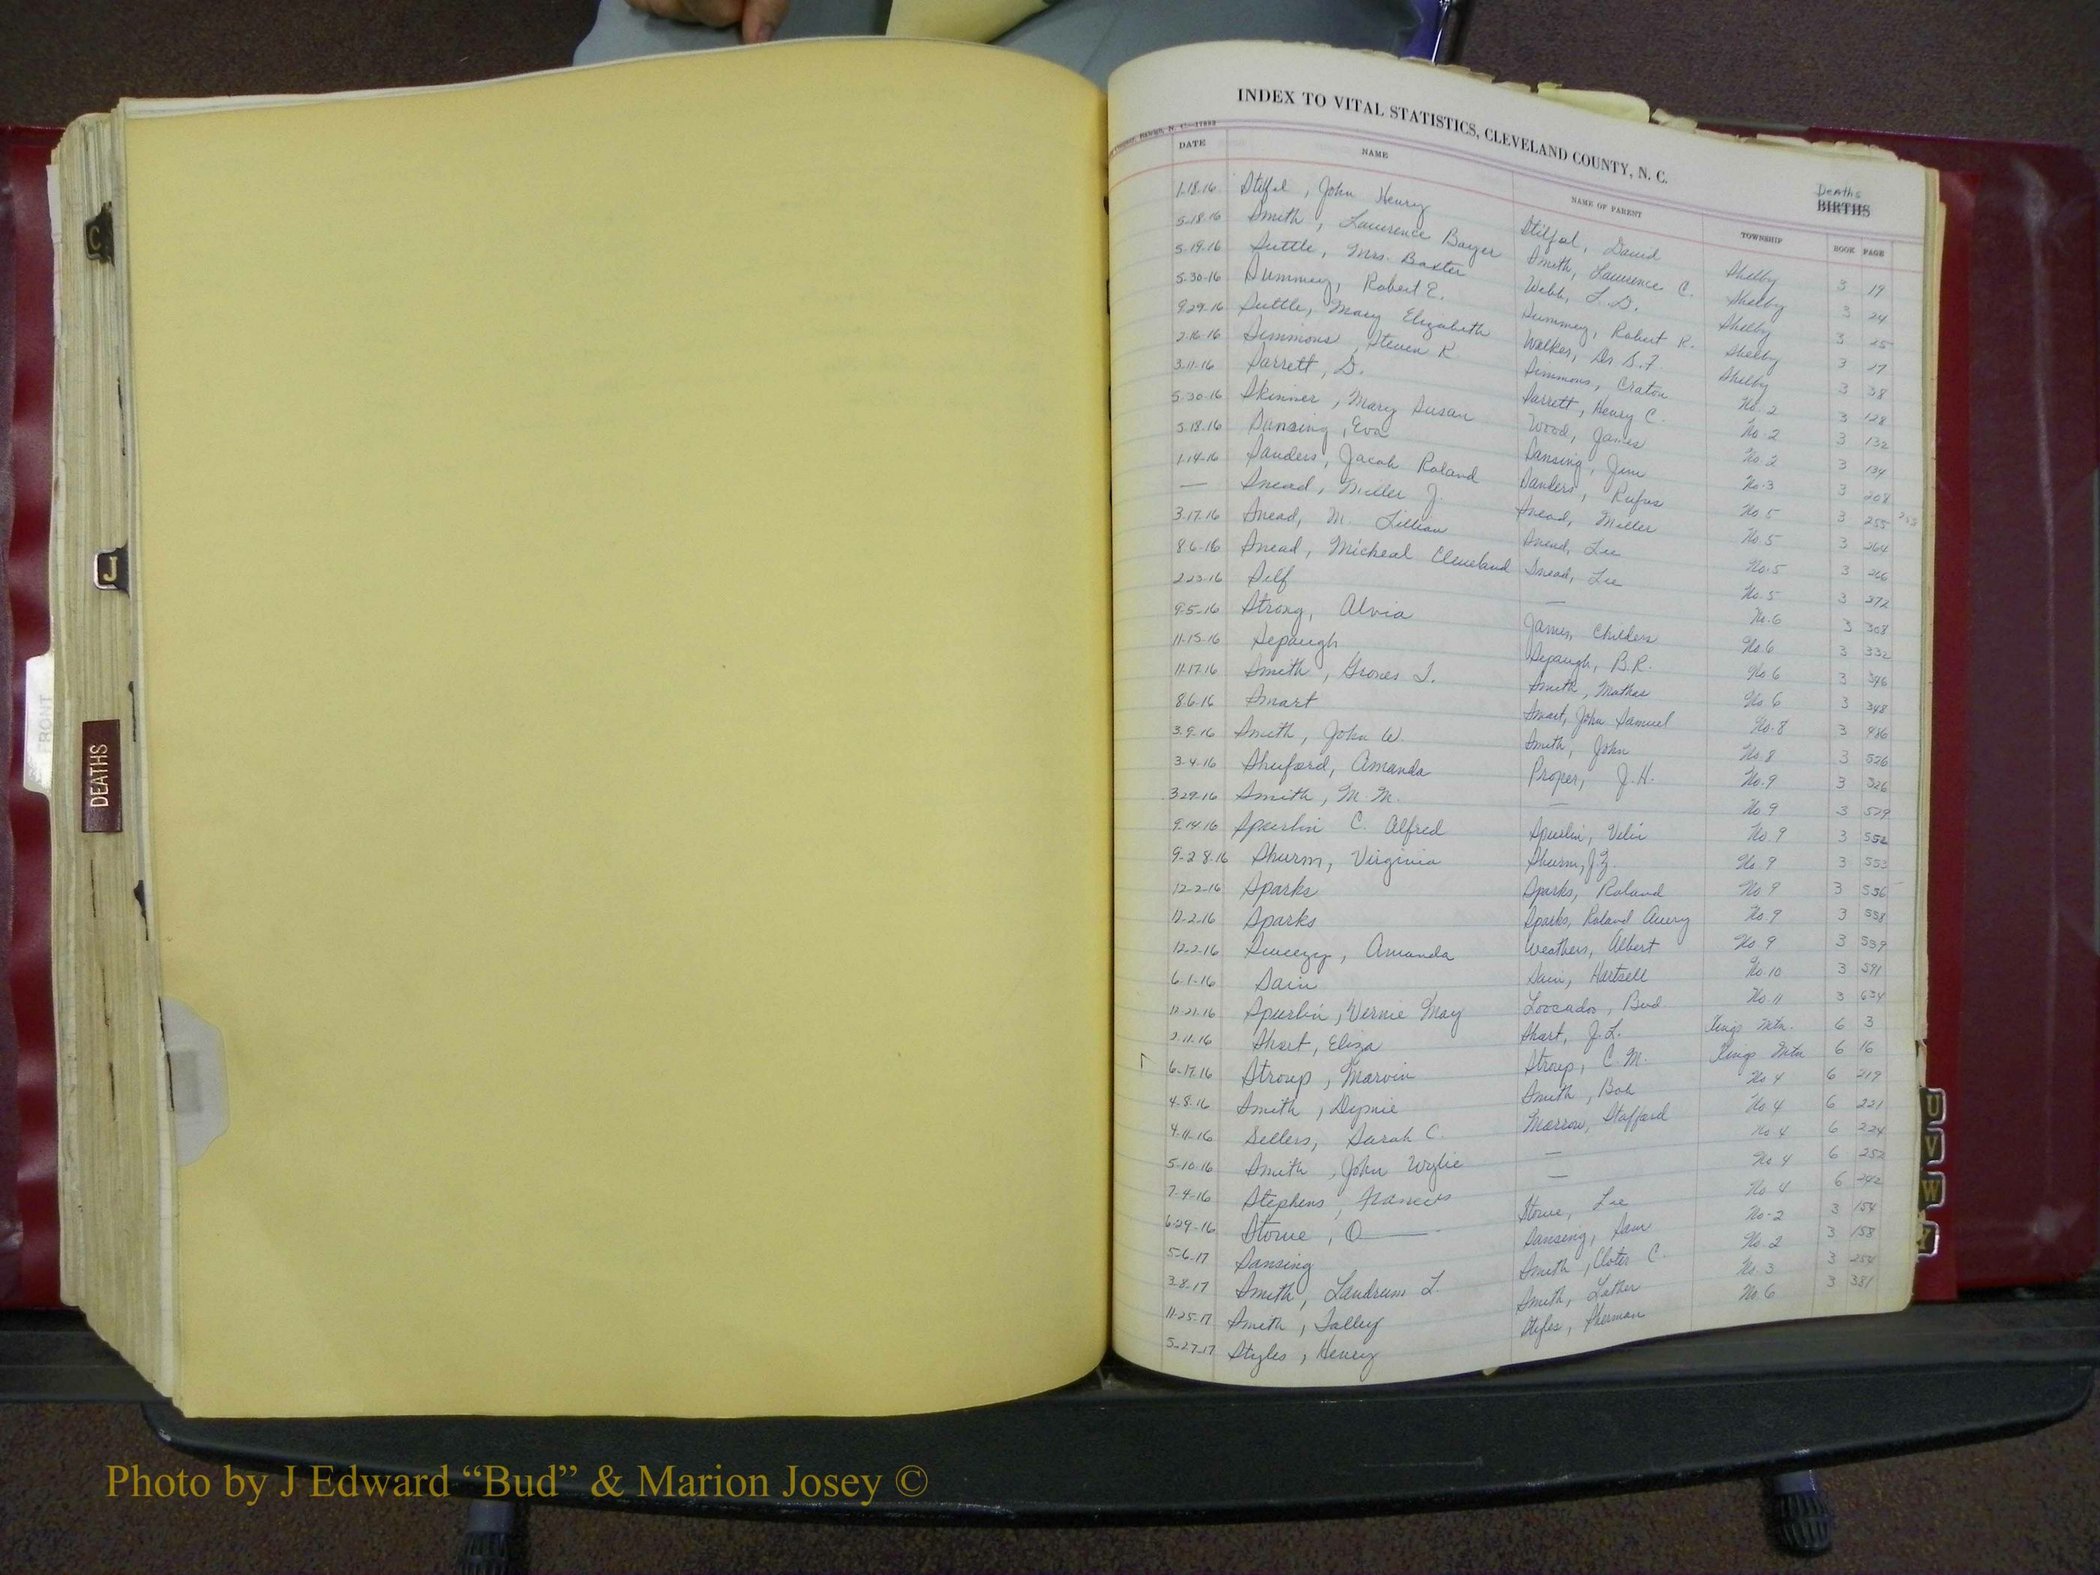 INDEX TO VITAL STATISTICS, CLEVELAND COUNTY, N. C.
Deaths
BIRTHS
DATE NAME NAME OF PARENT TOWNSHIP BOOK PAGE
1-18-16 John Henry David Shelby 3 19
5-18-16 Smith, Lawrence Smith, Lawrence C. Shelby 3 24
5-19-16 Suttle, Mrs. Baxter Webb, L. D. Shelby 3 25
5-30-16 Summey, Robert E. Summey, Robert R. Shelby 3 27
9-29-16 Suttle, Mary Elizabeth Walker, Dr S. F. Shelby 3 38
2-16-16 Simmons, Steven R. Simmons, Craton No. 2 3 128
3-11-16 Sarrett, D. Sarrett, Henry C. No. 2 3 132
5-30-16 Skinner, Mary Susan Wood, James No. 2 3 134
5-18-16 Sansing, Eva Sansing, Jim No. 3 3 208
1-14-16 Sanders, Jacob Roland Sanders, Rufus No 5 3 255
— Snead, Miller J. Snead, Miller No. 5 3 264
3-17-16 Snead, M. Lillian Snead, Lee No. 5 3 266
8-6-16 Snead, Micheal Cleveland Snead, Lee No. 5 3 272
2-23-16 Self — No. 6 3 308
9-5-16 Strong, Alvia James, Childers No. 6 3 332
11-15-16 Sepaugh Sepaugh, B. R. No 6 3 346
11-17-16 Smith, Smith, No 6 3 348
8-6-16 Smart Smart, John Samuel No. 8 3 486
3-9-16 Smith, John W. Smith, John No. 8 3 526
3-4-16 Shuford, Amanda Proper, J. H. No. 9 3
3-29-16 Smith, M. M. — No 9 3 529
9-14-16 Spurlin C. Alfred Spurlin, No. 9 3 552
9-28-16 Shurm, Virginia Shurm, J. Z. No. 9 3 553
12-2-16 Sparks Sparks, Roland No. 9 3 556
12-2-16 Sparks Sparks, Roland Avery No. 9 3 558
12-2-16 Amanda Weathers, Albert No 9 3 559
6-1-16 Sain Sain, Hartsell No. 10 3 591
12-21-16 Spurlin, Vernie May Bud No. 11 3 634
2-11-16 Short, Eliza Short, J. L. Kings Mtn. 6 3
6-17-16 Stroup, Marvin Stroup, C. M. Kings Mtn 6 16
4-8-16 Smith, Smith, Bob No 4 6 219
4-11-16 Sellers, Sarah C. Marrow, Stafford No. 4 6 221
5-10-16 Smith, John Wylie — No 4 6 224
7-4-16 Stephens, Francis — No 4 6 252
6-29-16 Stowe, O— Stowe, Lee No 4 6 242
5-6-17 Sansing Sansing, Sam No-2 3 154
3-8-17 Smith, Landrum L. Smith, C. No. 2 3 158
11-25-17 Smith, Talley Smith, Luther No. 3 3 254
5-27-17 Styles, Henry Styles, Sherman No. 6 3 381
C
J
FRONT
DEATHS
U
V
W
Photo by J Edward “Bud” & Marion Josey ©